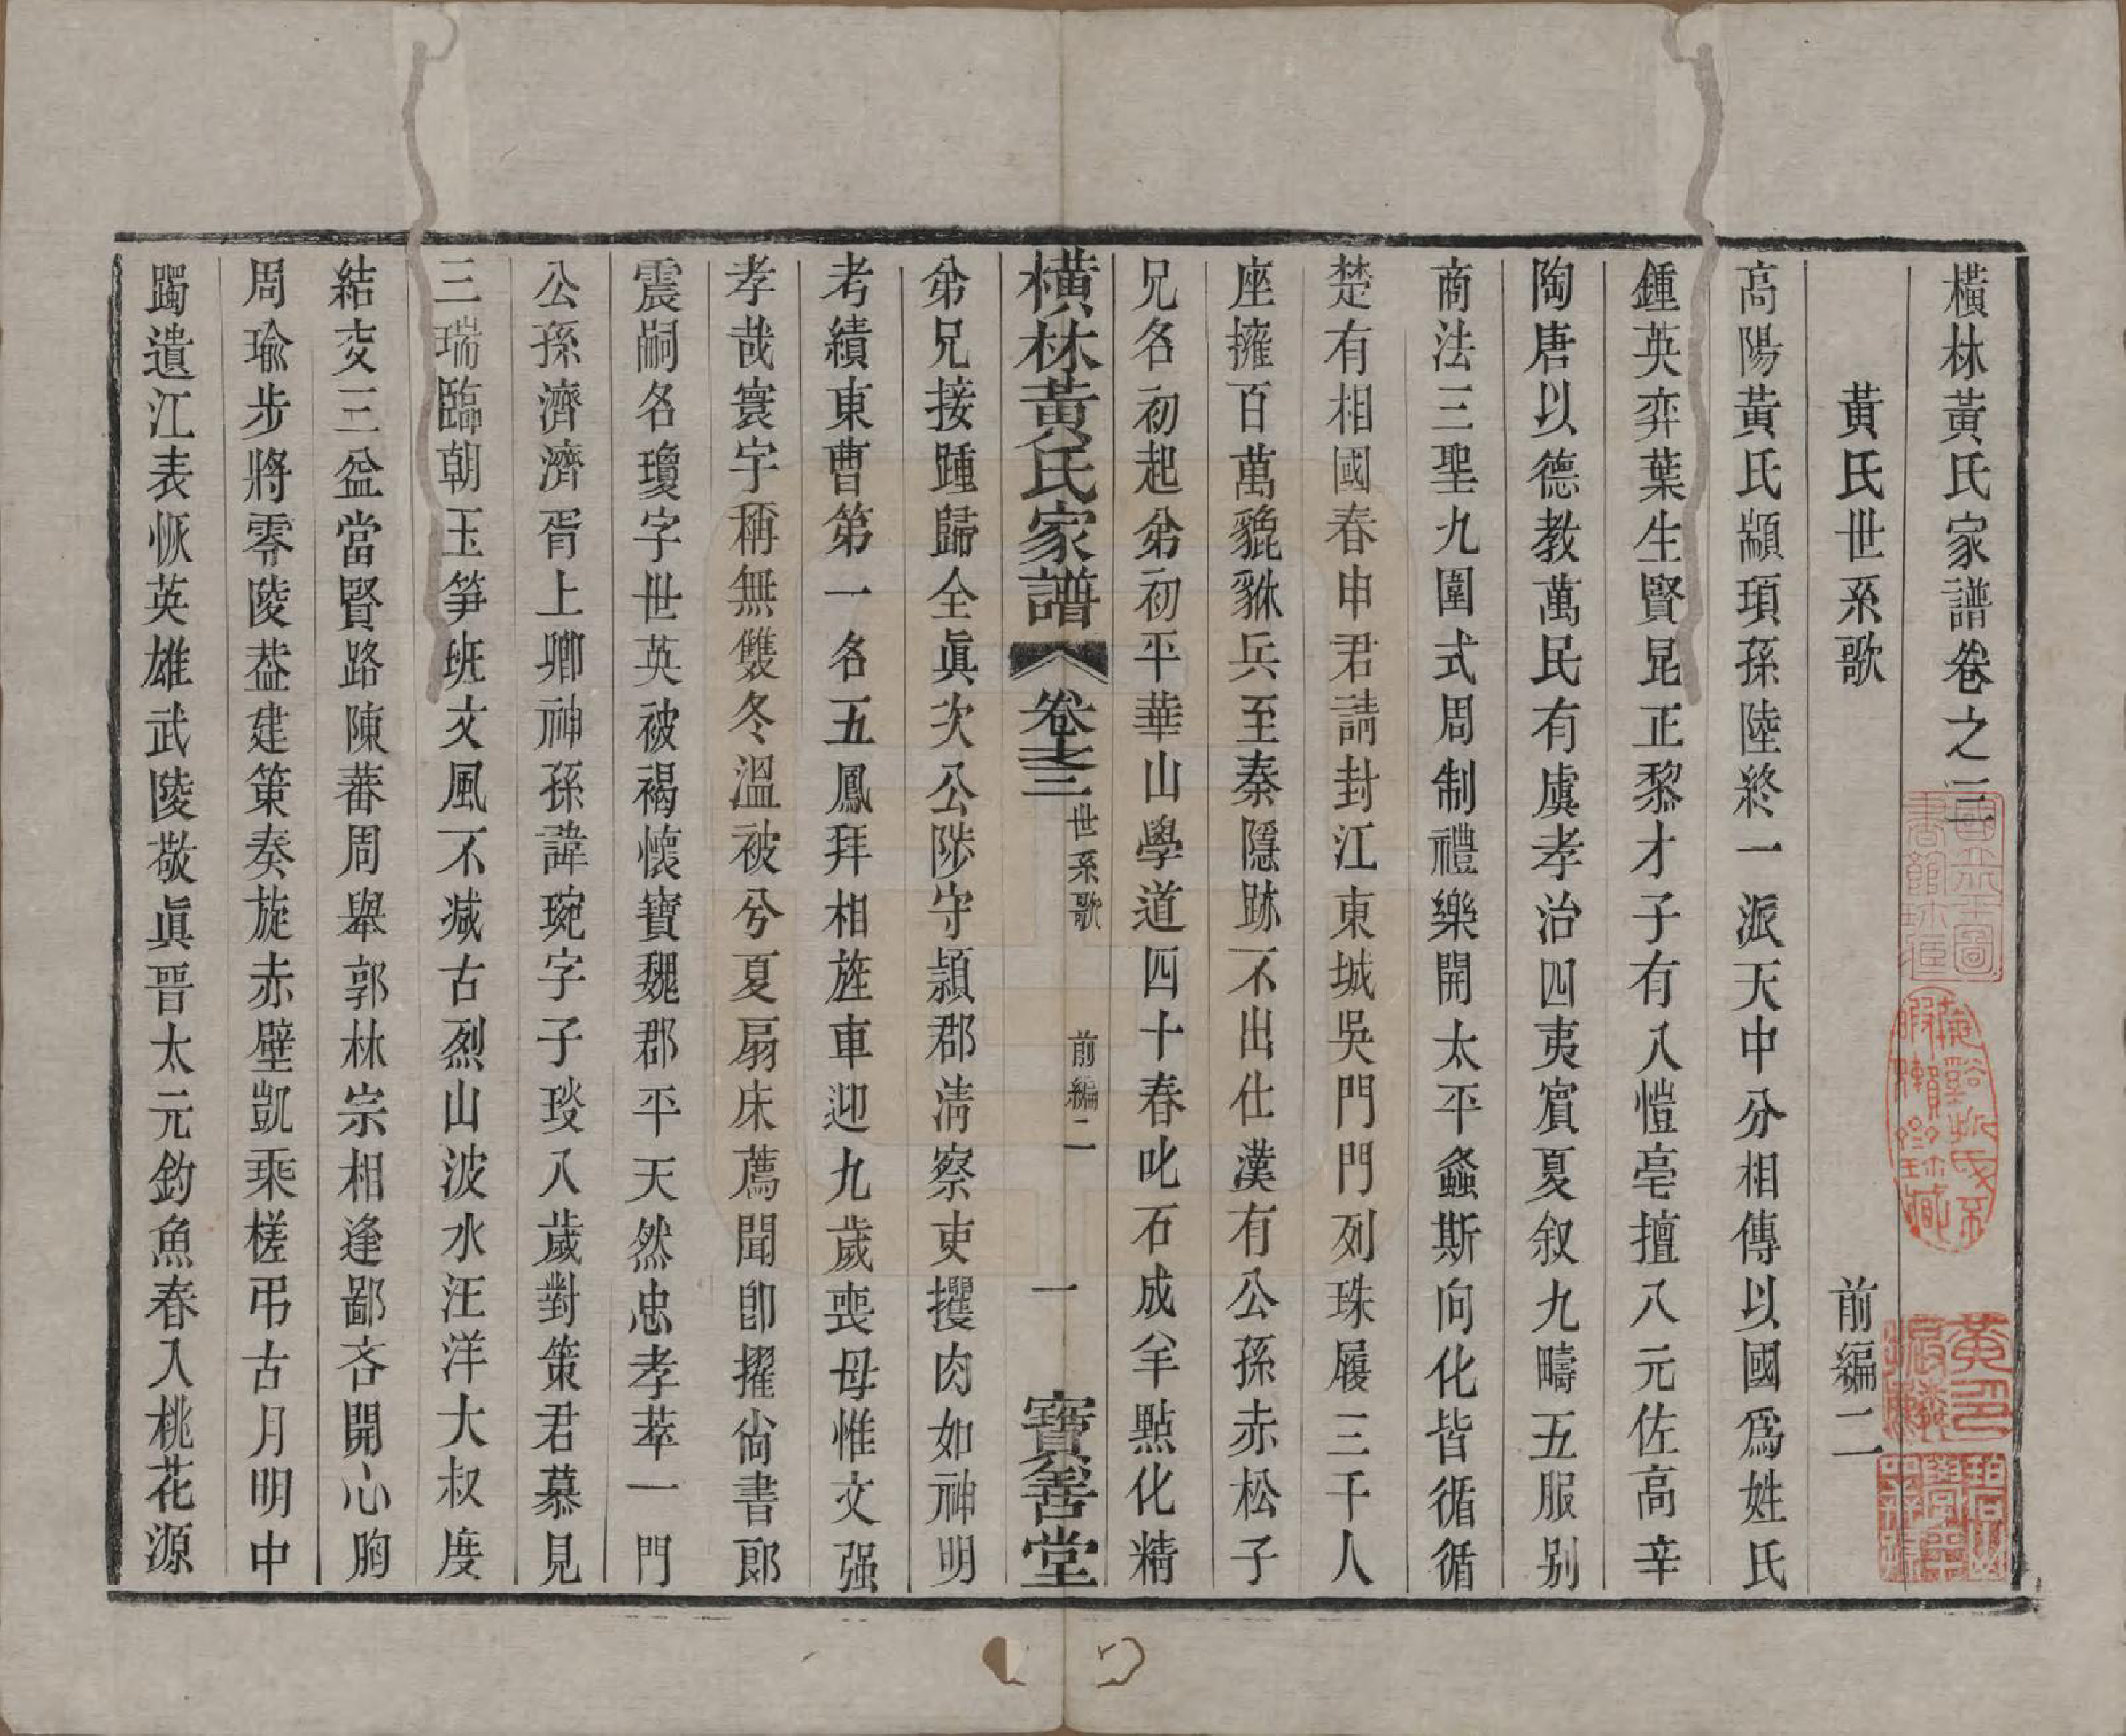 橫林黃氏家譜卷之三
黃氏世系歌　前編二
高陽黃氏顓頊孫陸終一派天中分相傳以國爲姓氏
鍾英弈葉生賢昆正黎才子有八愷亳擅八元佐高辛
陶唐以德教萬民有虞孝治四夷賓夏叙九疇五服别
商法三聖九圍式周制禮樂開太平螽斯向化皆循循
楚有相國春申君請封江東城吳門門列珠履三千人
座擁百萬貔貅兵至秦隱跡不出仕漢有公孫赤松子
兄名初起弟初平華山學道四十春叱石成羊點化精
橫林黃氏家譜　卷之三　世系歌　前編二　一　寶善堂
弟兄接踵歸全眞次公陟守潁郡淸察吏攫肉如神明
考績東曹第一名五鳳拜相旌車迎九歲喪母惟文强
孝哉寰宇稱無雙冬溫被兮夏扇床薦聞卽擢尙書郎
震嗣名瓊字世英被褐懷寶魏郡平天然忠孝萃一門
公孫濟濟胥上卿神孫諱琬字子琰八歲對策君慕見
三瑞臨朝玉笋班文風不减古烈山波水汪洋大叔度
結交三益當賢路陳蕃周舉郭林宗相逢鄙吝開心胸
周瑜步將零陵葢建策奏旋赤壁凱乘槎弔古月明中
躅遺江表恢英雄武陵敬眞晋太元釣魚春入桃花源